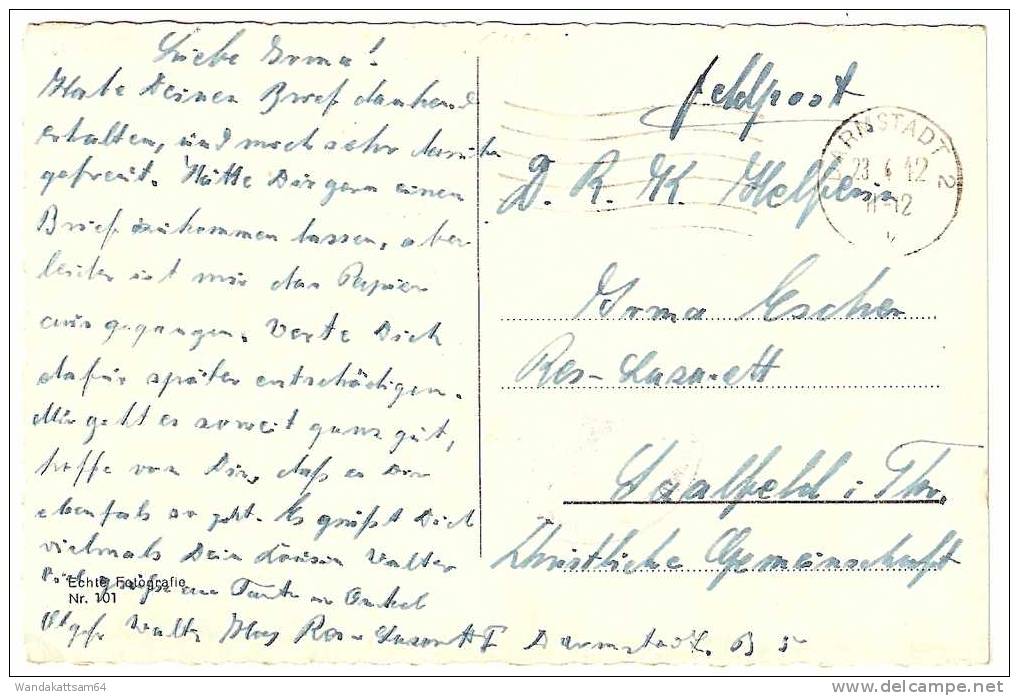 Liebe Irma!
Habe Deinen Brief dankend
erhalten, und mich sehr darüber
gefreut. Hätte Dir gern einen
Brief zukommen lassen, aber
leider ist mir das Papier
ausgegangen. Werde Dich
dafür später entschädigen.
Mir geht es soweit ganz gut,
hoffe von Dir, daß es Dir
ebenfals so geht. Es grüßt Dich
vielmals Dein Cousin Walter
Tante u Onkel
Echte Fotografie
Nr. 101
Ogefr Walter Res-Lasarett I Darmstadt. B 5
Feldpost
ARNSTADT 2
23.4.42
11-12
D. R. K. Helferin
Irma Escher
Res-Lasarett
Saalfeld i. Thr.
Christliche Gemeinschaft
Wandakattsam64
www.delcampe.net